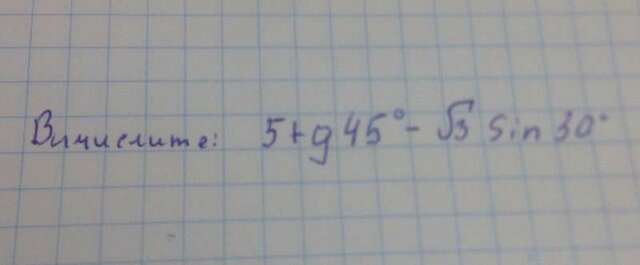 Вычислите: 5tg45° - √3 sin30°